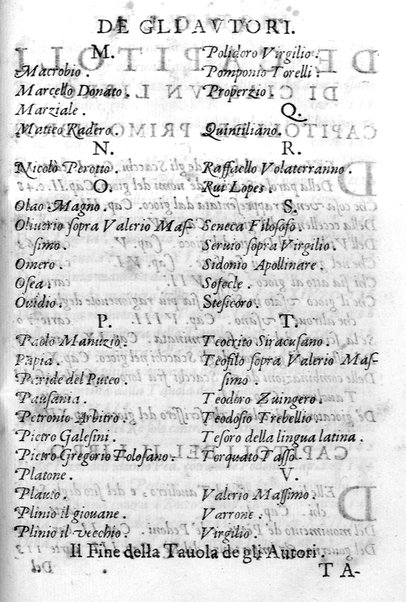 DE GLI AVTORI.
M.
Macrobio.
Marcello Donato.
Marziale.
Matteo Radero.
N.
Nicolò Perotto.
O.
Olao Magno.
Oliuerio sopra Valerio Mas-
simo.
Omero.
Osea.
Ouidio.
P.
Paolo Manuzio.
Papia.
Paride del Puteo.
Pausania.
Petronio Arbitro.
Pietro Galesini.
Pietro Gregorio Tolosano.
Platone.
Plauto.
Plinio il giouane.
Plinio il vecchio.
Polidoro Virgilio.
Pomponio Torelli.
Properzio.
Q.
Quintiliano.
R.
Raffaello Volaterranno.
Rui Lopes.
S.
Seneca Filosofo.
Seruio sopra Virgilio.
Sidonio Apollinare.
Sofocle.
Stesicoro.
T.
Teocrito Siracusano.
Teofilo sopra Valerio Mas-
simo.
Teodoro Zuingero.
Teodosio Trebellio.
Tesoro della lingua latina.
Torquato Tasso.
V.
Valerio Massimo.
Varrone.
Virgilio.
Il Fine della Tauola de gli Autori.
TA-